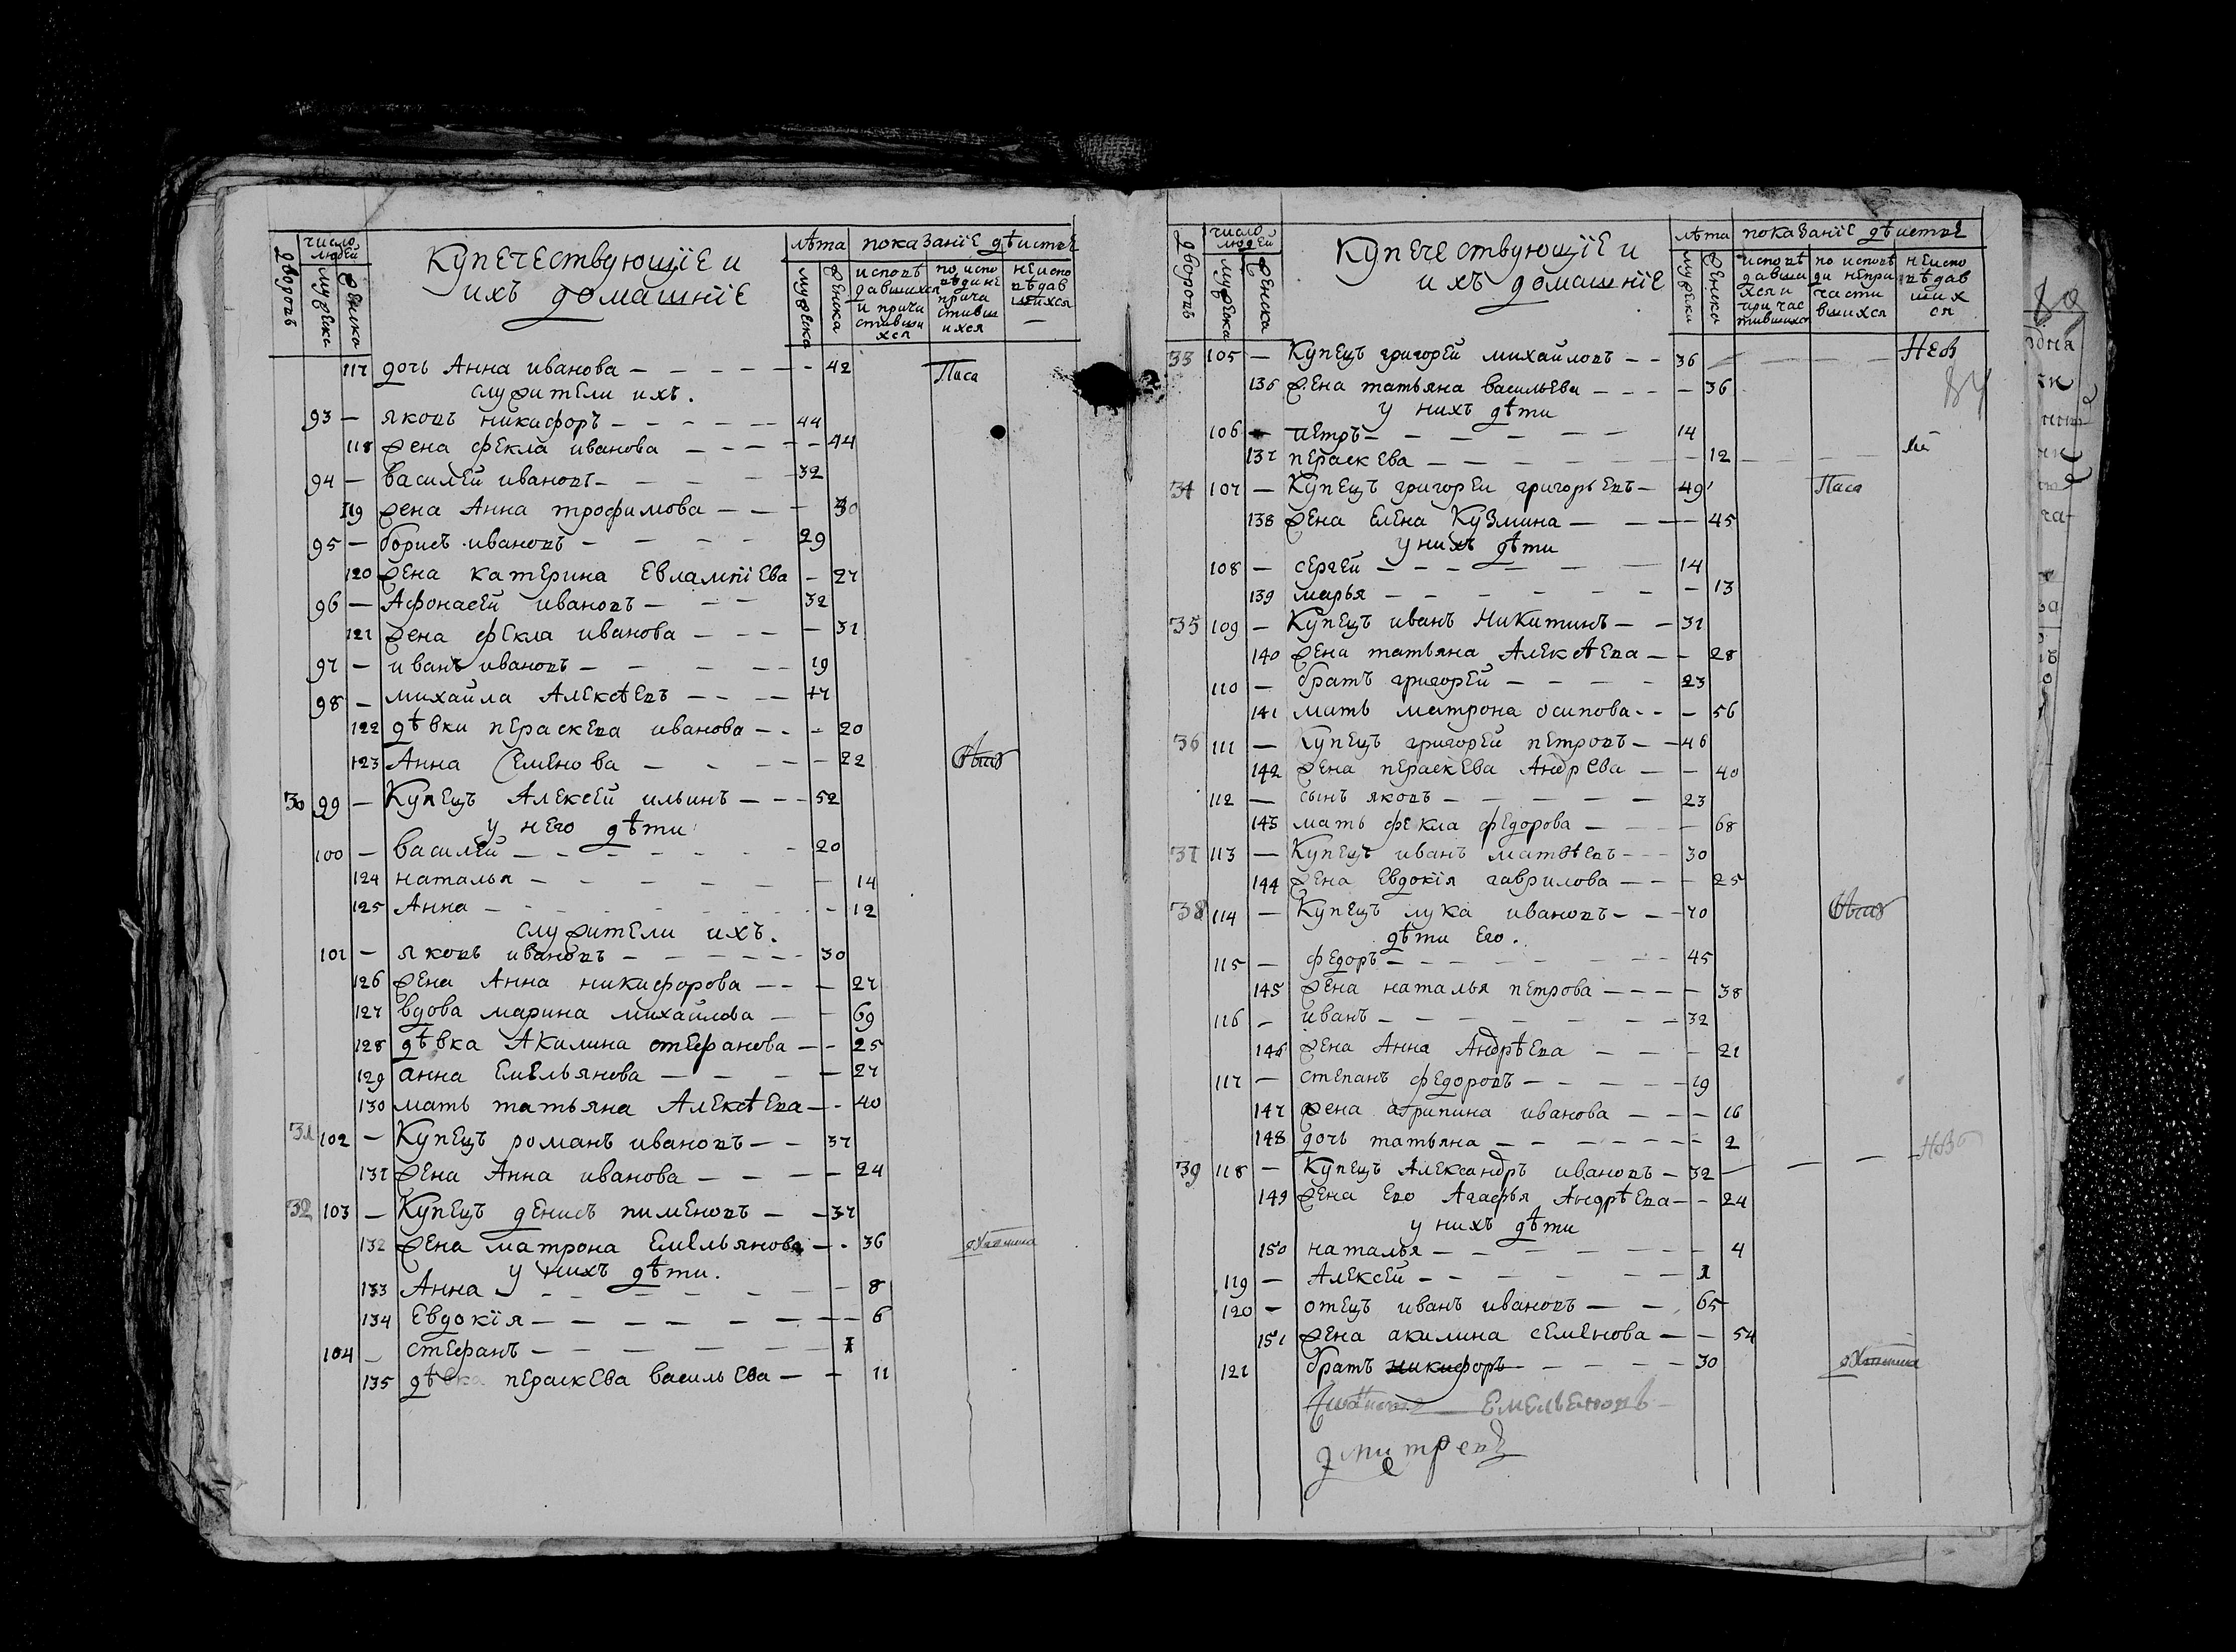 дворовъ
число людей
мужеска
женска
Купечествующїе и
ихъ домашнїе
лѣта
мужеска
женска
показанїе дѣиства
исповѣдавшихся и причастившихся
по исповѣди не причастившихся
неисповѣдавшихся
117 дочь Анна иванова — 42
служители ихъ.
93 — яковъ никифоръ — 44
118 жена фекла иванова — 44
94 — василей ивановъ — 32
119 жена Анна трофимова — 30
95 — борисъ ивановъ — 29
120 жена катерина Евлампїева — 27
96 — Афонасей ивановъ — 32
121 жена фекла иванова — 31
97 — иванъ ивановъ — 19
98 — михайла Алексѣевъ — 17
122 дѣвки пераскева иванова — 20
123 Анна Семенова — 22
30 99 — Купецъ Алексей ильинъ — 52
у него дѣти
100 — василей — 20
124 наталья — 14
125 Анна — 12
служители ихъ.
101 — яковъ ивановъ — 30
126 жена Анна никифорова — 27
127 вдова марина михаилова — 69
128 дѣвка Акилина стефанова — 25
129 анна Емельянова — 27
130 мать татьяна Алексѣева — 40
31 102 — Купецъ романъ ивановъ — 37
131 жена Анна иванова — 24
32 103 — Купецъ денисъ пименовъ — 37
132 жена матрона Емельянова — 36
у нихъ дѣти.
133 Анна — 8
134 Евдокїя — 6
104 — стефанъ — 1
135 дѣвка пераскева васильева — 11
дворовъ
число людей
мужеска
женска
Купечествующїе и
ихъ домашнїе
лѣта
мужска
женска
показанїе дѣиства
исповѣдавшихся и причастившихся
по исповѣди непричастившихся
неисповѣдавшихся
84
33 105 — Купецъ григорей михайловъ — 36
136 жена татьяна васильева — 36
у нихъ дѣти
106 — петръ — 14
137 пераскева — 12
34 107 — Купецъ григореи григорьевъ — 49
138 жена Елена Кузмина — 45
у нихъ дѣти
108 — сергей — 14
139 марья — 13
35 109 — Купецъ иванъ Никитинъ — 31
140 жена татьяна Алексѣева — 28
110 — братъ григорей — 23
141 мать матрона осипова — 56
36 111 — Купецъ григорей петровъ — 46
142 жена пераскева Андрева — 40
112 — сынъ яковъ — 23
143 мать фекла федорова — 68
37 113 — Купецъ иванъ матвѣевъ — 30
144 жена Евдокїя гаврилова — 25
38 114 — Купецъ лука ивановъ — 70
дѣти его.
115 — федоръ — 45
145 жена наталья петрова — 38
116 — иванъ — 32
146 жена Анна Андрѣева — 21
117 — степанъ федоровъ — 19
147 жена агрипина иванова — 16
148 дочь татьяна — 2
39 118 — Купецъ Александръ ивановъ — 32
149 жена Ево Агафья Андрѣева — 24
у нихъ дѣти
150 наталья — 4
119 — Алексей — 1
120 — отецъ иванъ ивановъ — 65
151 жена акилина семенова — 54
121 братъ никифоръ — 30
Емельеновъ